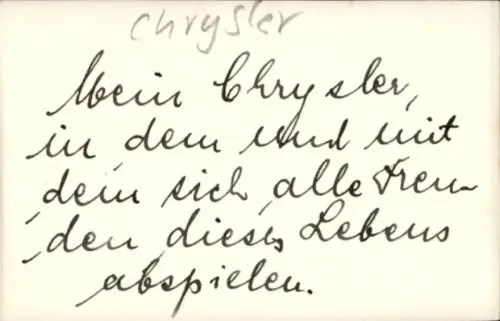 Chrysler
Mein Chrysler,
in dem und mit
dem sich alle Freu-
den dieses Lebens
abspielen.